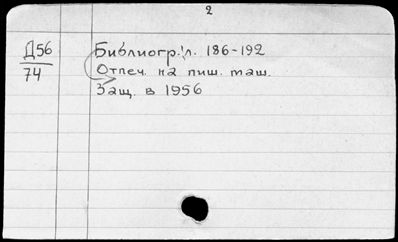 2
Д56
74
Библиогр.: л. 186-192
Отпеч. на пиш. маш.
Защ. в 1956